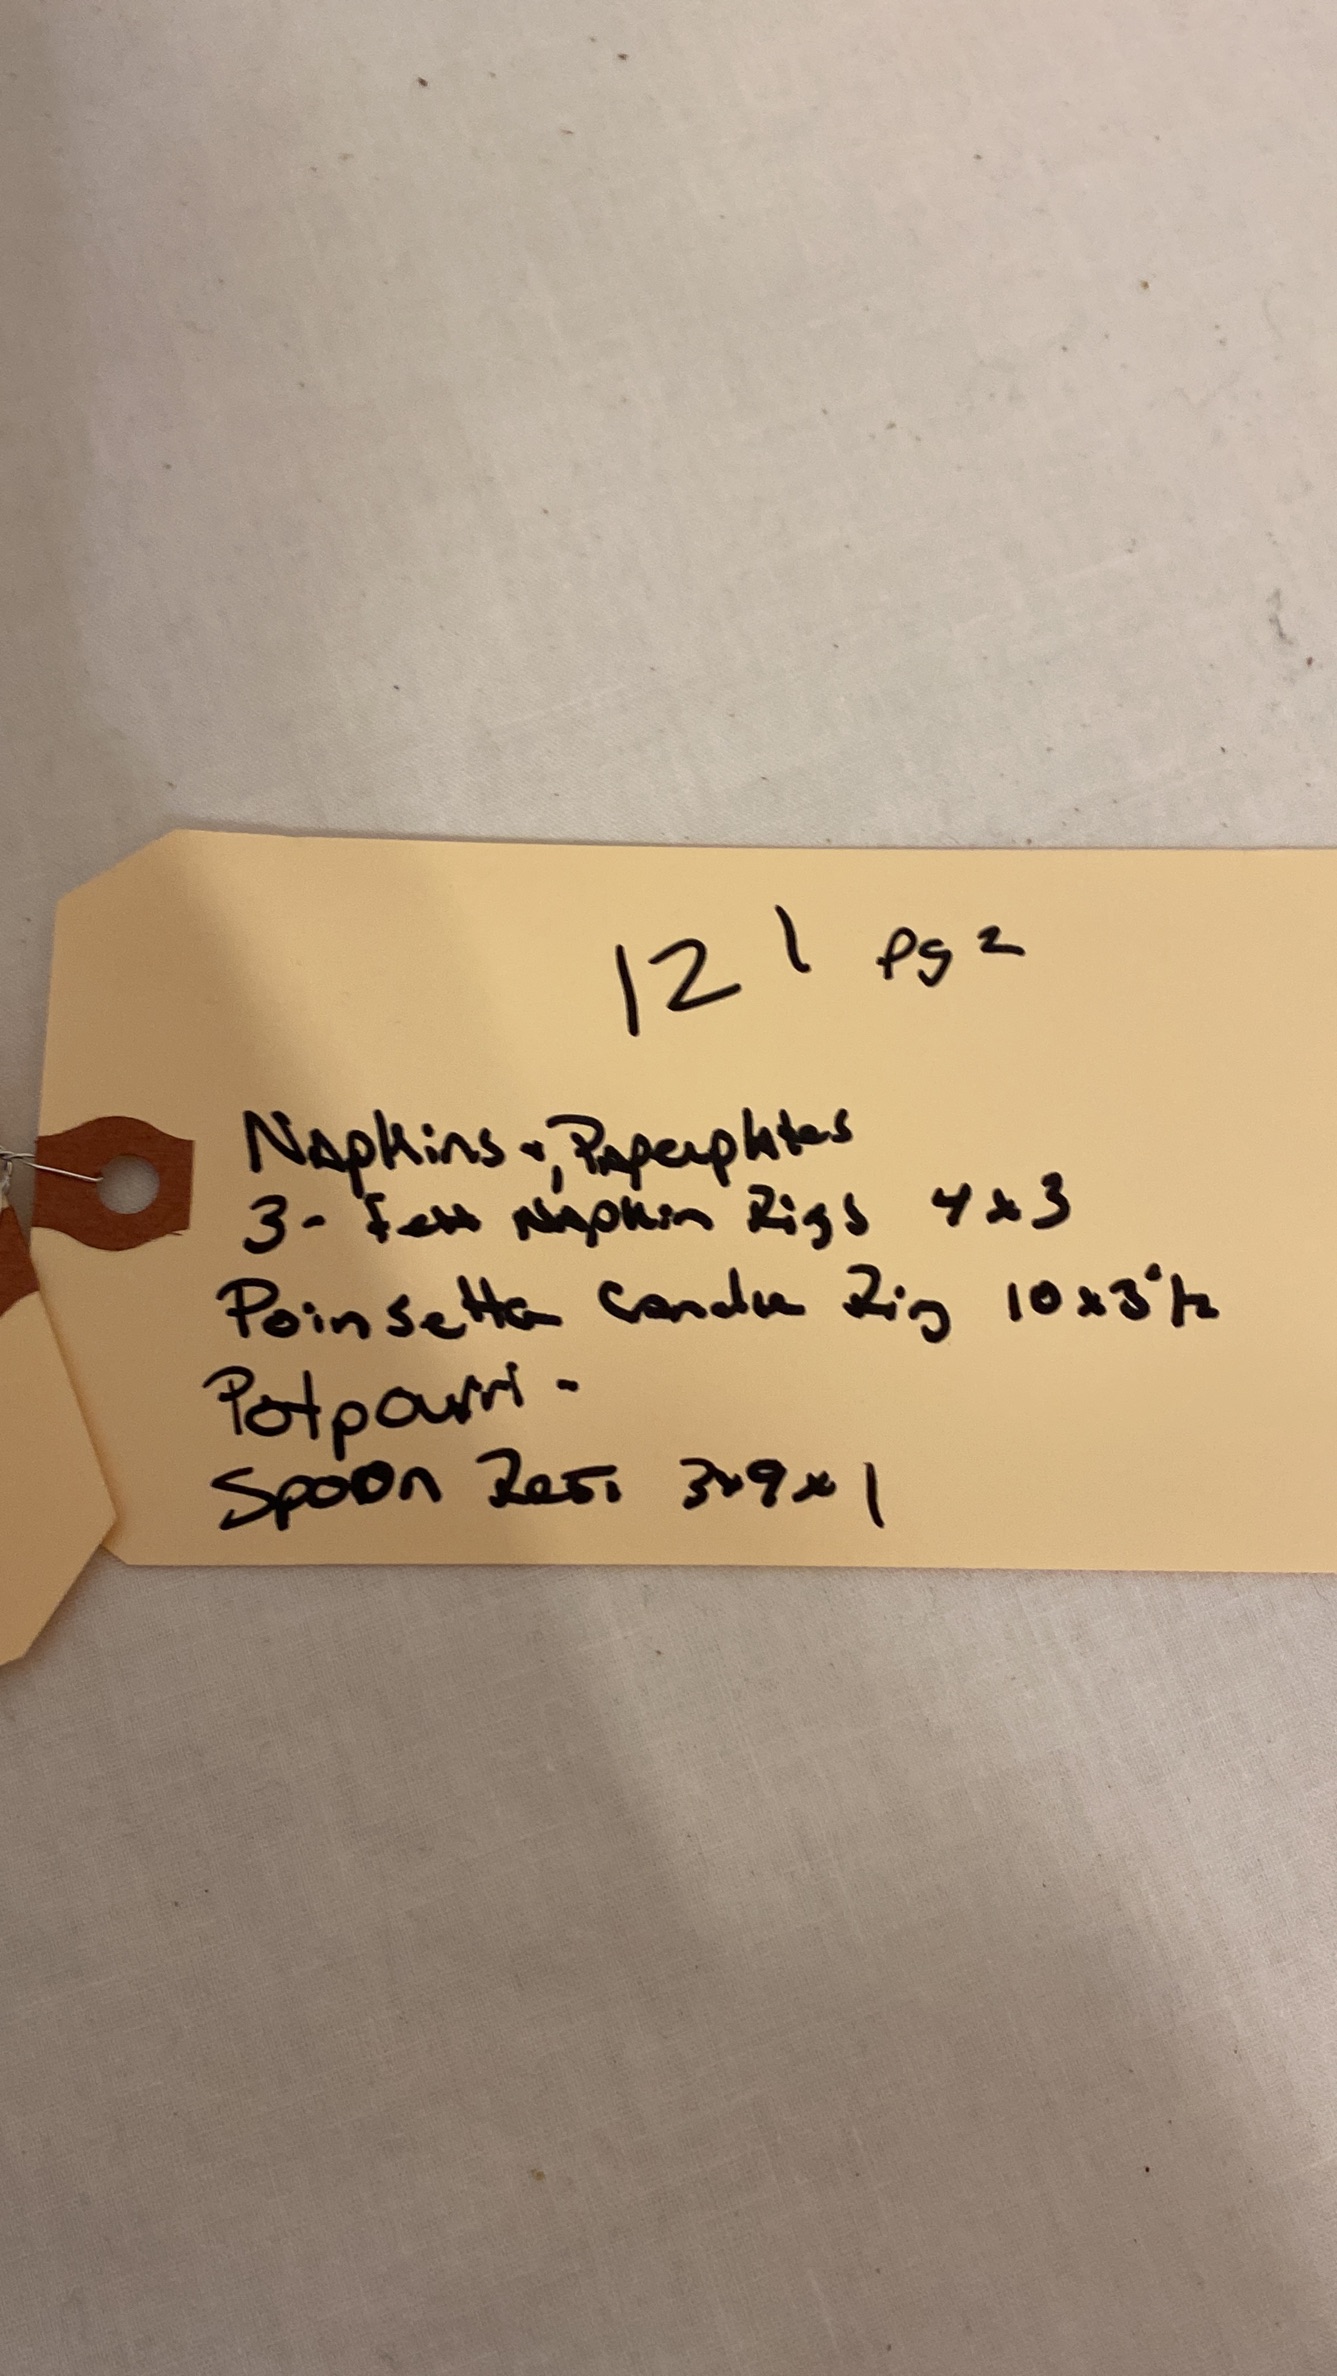 121 pg 2
Napkins +, Paperplates
3- Felt Napkin Rigs 4x3
Poinsetta Candle Rig 10x3 1/2
Potpourri -
Spoon Rest 3x9x1